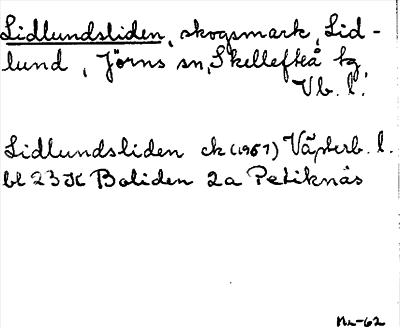 Lidlundsliden, skogsmark, Lid-
lund, Jörns sn, Skellefteå tg,
Vb. l.
Lidlundsliden ek (1967) Västerb. l.
bl 23 K Boliden 2a Petiknäs